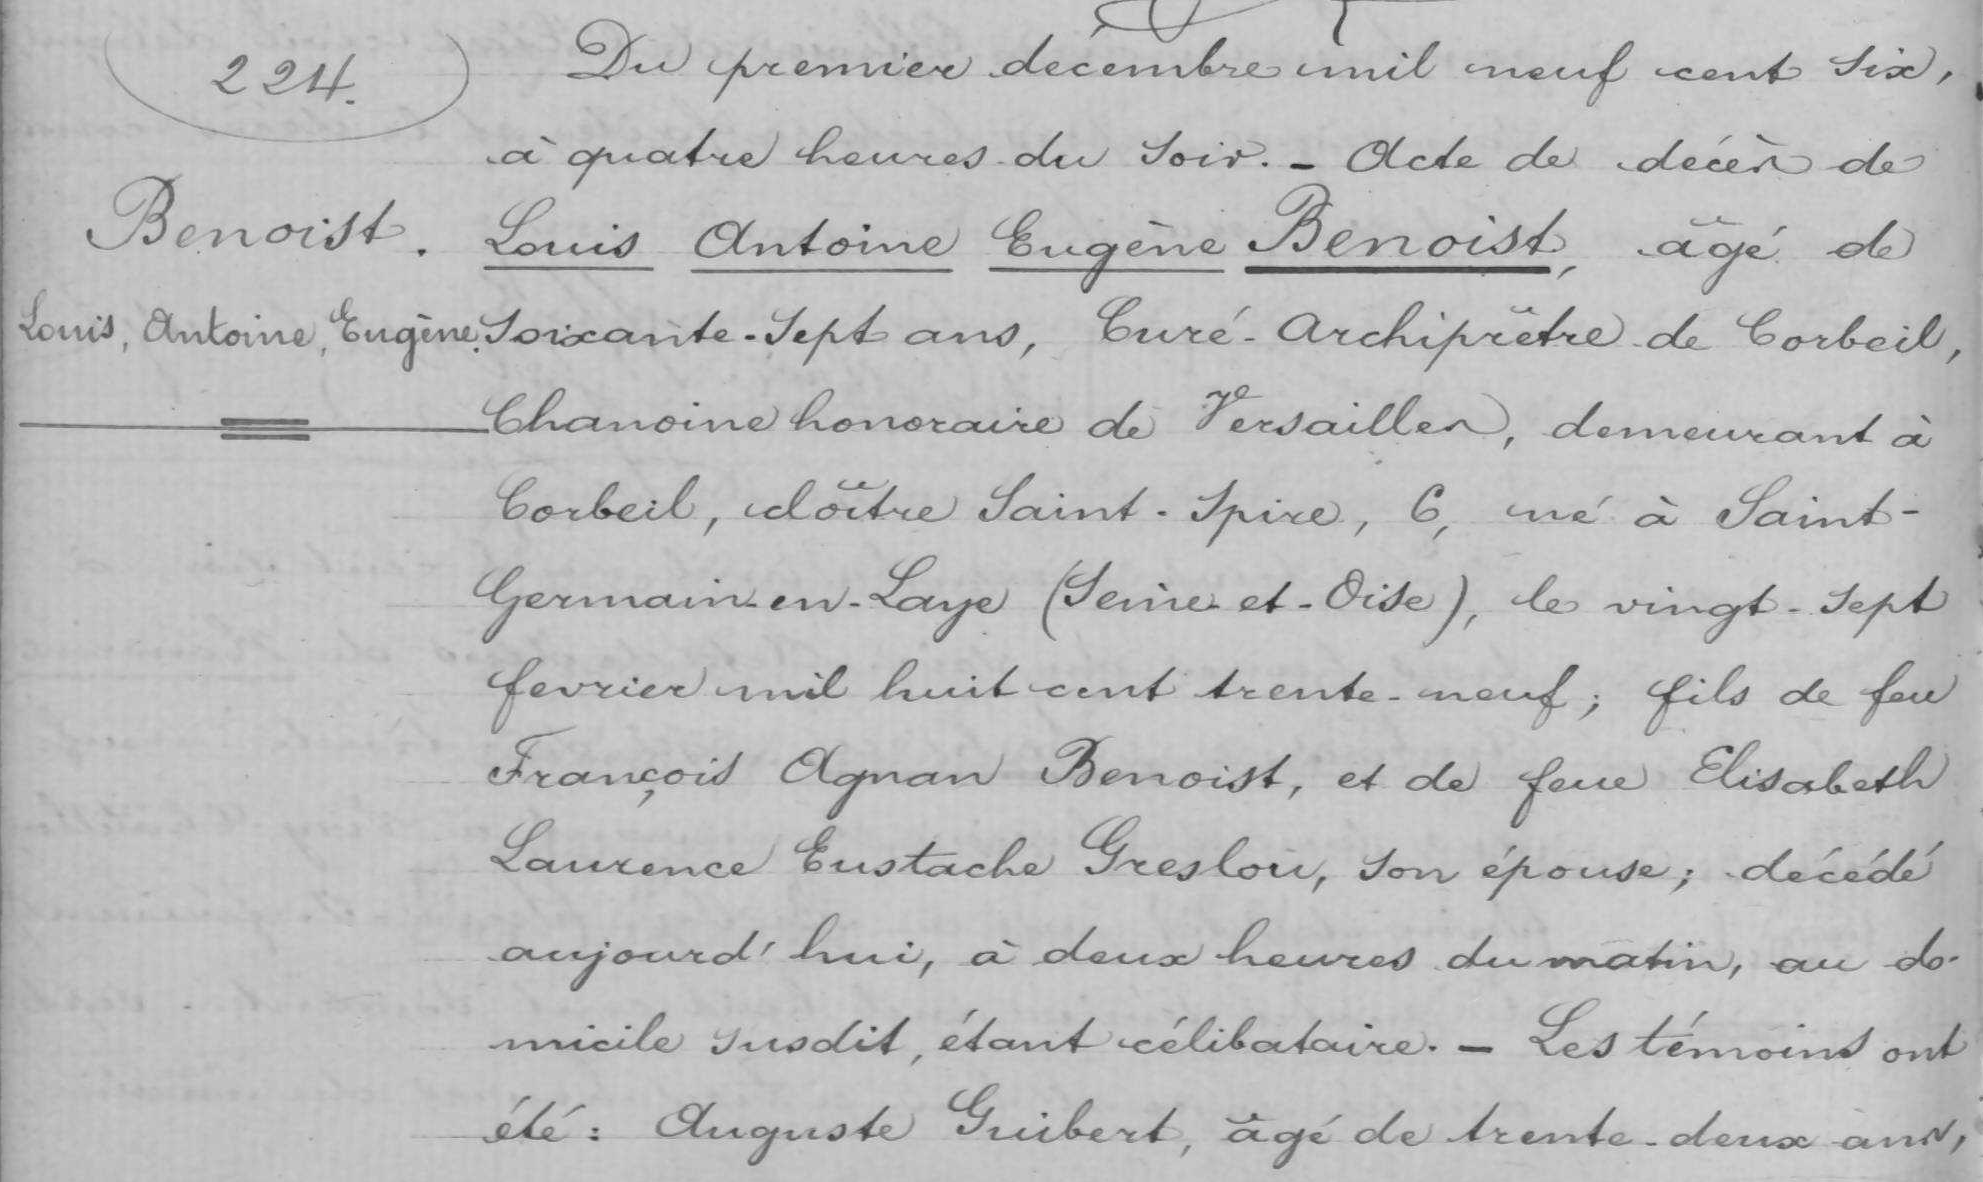 224.
Du premier decembre mil neuf cent six,
à quatre heures du soir. - Acte de décès de
Benoist.
Louis Antoine Eugène Benoist, âgé de
Louis, Antoine, Eugène.
soixante-sept ans, Curé-Archiprêtre de Corbeil,
Chanoine honoraire de Versailles, demeurant à
Corbeil, cloître Saint-Spire, 6, né à Saint-
Germain-en-Laye (Seine-et-Oise), le vingt-sept
fevrier mil huit cent trente-neuf; fils de feu
François Agnan Benoist, et de feue Elisabeth
Laurence Eustache Greslou, son épouse; décédé
aujourd'hui, à deux heures du matin, au do-
micile susdit, étant célibataire. - Les témoins ont
été: Auguste Guibert, âgé de trente-deux ans,